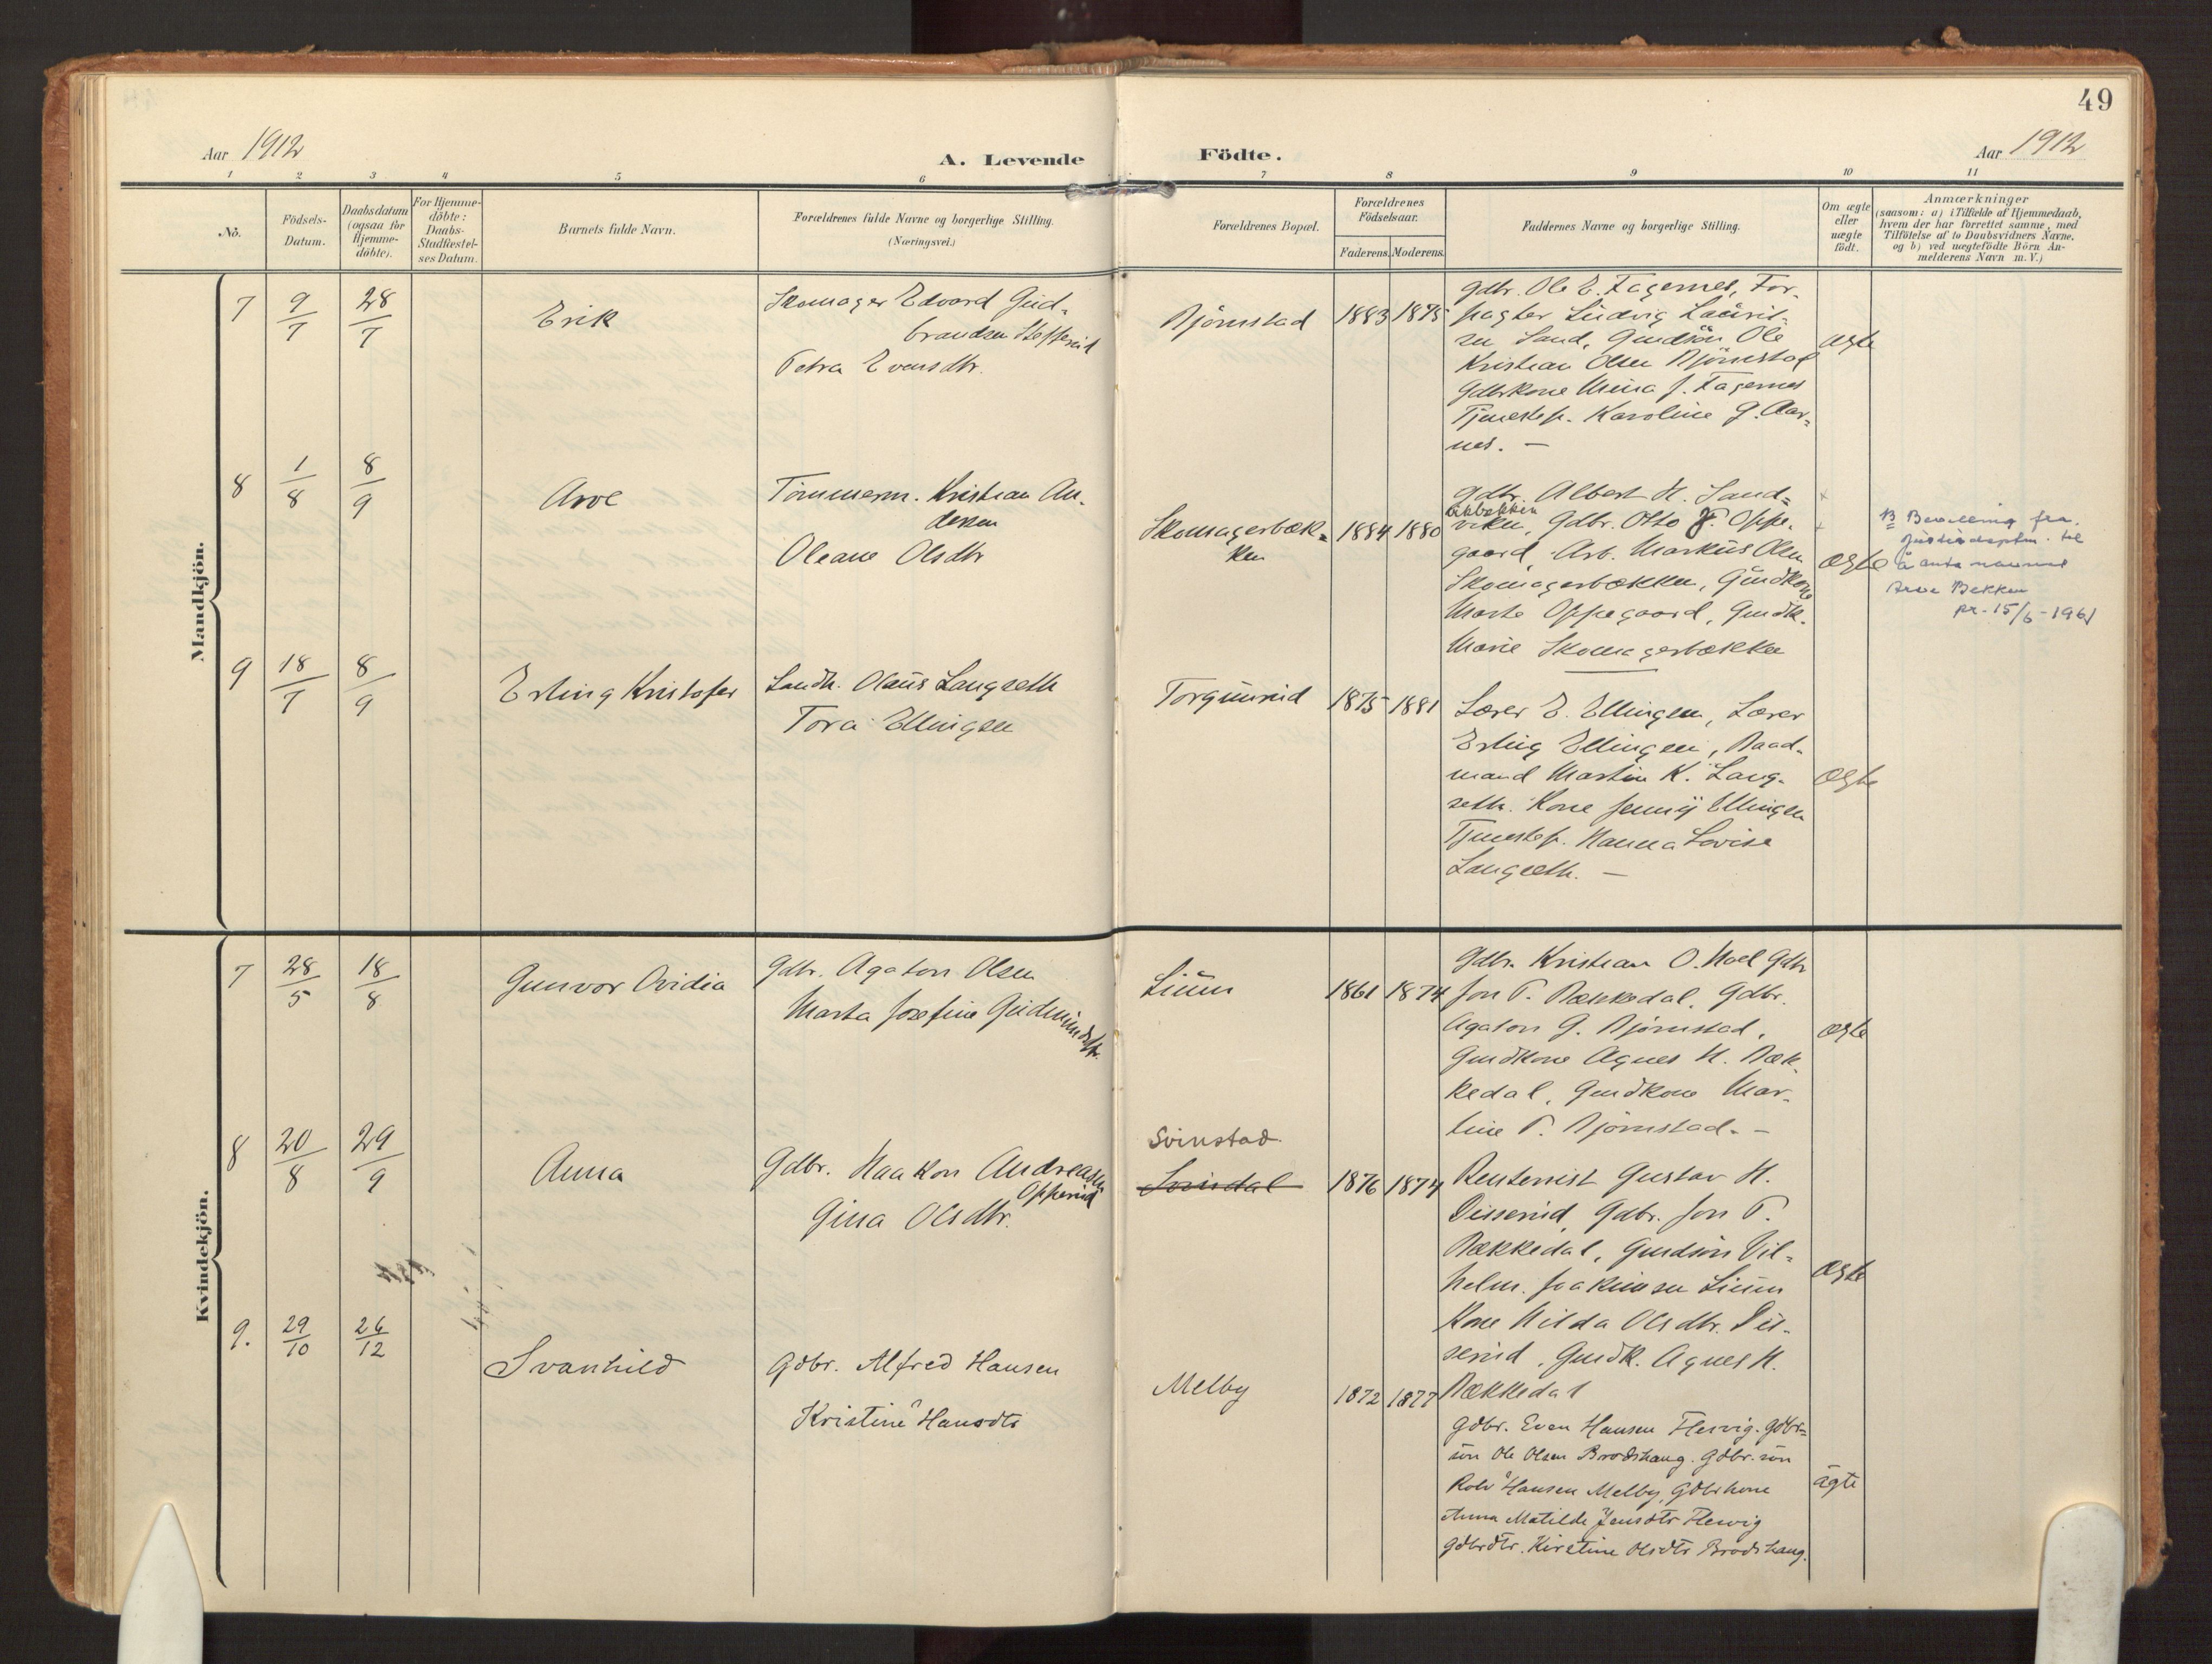 49
Aar 1912
A. Levende
Födte.
Aar 1912
1 2 3 4 5 6 7 8 9 10 11
No.
Födsels-
Datum.
Daabsdatum
(ogsaa for
Hjemme-
döbte).
For Hjemme-
döbte:
Daabs-
Stadfæstel-
ses Datum.
Barnets fulde Navn.
Forældrenes fulde Navne og borgerlige Stilling.
(Næringsvei.)
Forældrenes Bopæl.
Forældrenes
Födselsaar.
Faderens. Moderens.
Faddernes Navne og borgerlige Stilling.
Om ægte
eller
uægte
födt.
Anmærkninger
(saasom: a) i Tilfælde af Hjemmedaab,
hvem der har forrettet samme, med
Tilföielse af to Daabsvidners Navne,
og b) ved uægtefödte Börn An-
melderens Navn m. V.)
Mandkjön.
7 9/7 28/7 Erik
Skomager Edvard Gud-
brandsen
Petra Evensdtr.
Björnstad 1883 1875
Gdbr. Ole E. Fagernes, For-
pagter Ludvig Laurit-
zen Sand, Gmdsön Ole
Kristian Olsen Björnstad
Gdbrkone Mina J. Fagernes
Tjenestep. Karoline G. Aar-
nes. —
ægte
8 1/8 8/9 Arve
Tömmerm. Kristian An-
dersen
Oleane Olsdtr
Skomagerbæk-
ken
1884 1880
Gdbr. Albert H. Sand-
viken, Gdbr. Otto F. Oppe-
gaard Arb. Markus Olsen
Skomagerbækken, Gmdkone
Marte Oppegaard, Gmdk.
Marie Skomagerbækken
ægte
B Bevilling fra
justisdeptm. til
å anta navnet
Arve Bekken
pr. 15/6-1961
9 18/7 8/9 Erling Kristofer
Landh. Olaus Langseth
Tora Ellingsen
Torgunrud 1875 1881
Lærer E. Ellingsen, Lærer
Erling Ellingsen, Baad-
mand Martin K. Lang-
seth. Kone Jenny Ellingsen
Tjenestep. Hanna Lovise
Langseth. —
ægte
Kvindekjön.
7 28/5 18/8 Gunvor Ovidia
Gdbr. Agaton Olsen
Marta Josefine Gudmundsdtr.
Lium 1861 1874
Gdbr. Kristian O. Hoel Gdbr
Jon P. Bækkedal, Gdbr.
Agaton G. Björnstad,
Gmdkone Agnes H. Bæk-
kedal, Gmdkone Mar-
tine P. Björnstad. —
ægte
8 20/8 29/9 Anna
Gdbr. Haakon Andreasen
Opperud
Gina Olsdtr.
Svinstad
1876 1874
Rentenist Gustav H.
Disserud, Gdbr. Jon P.
Bækkedal, Gmdsön Vil-
helm Joakimsen Lium
Kone Hilda Olsdtr. Dis-
serud, Gmdk. Agnes H.
Bækkedal
ægte
9. 29/10 26/12 Svanhild
Gdbr. Alfred Hansen
Kristine Hansdtr
Melby 1872 1877
Gdbr. Even Hansen Flesvig. Gdbr-
sön Ole Olsen Brodshaug. Gdbr. sön
Rolv Hansen Melby, Gdbrkone
Anna Matilde Jensdtr Flesvig
Gdbrdtr. Kirstine Olsdtr Brodshaug.
ägte